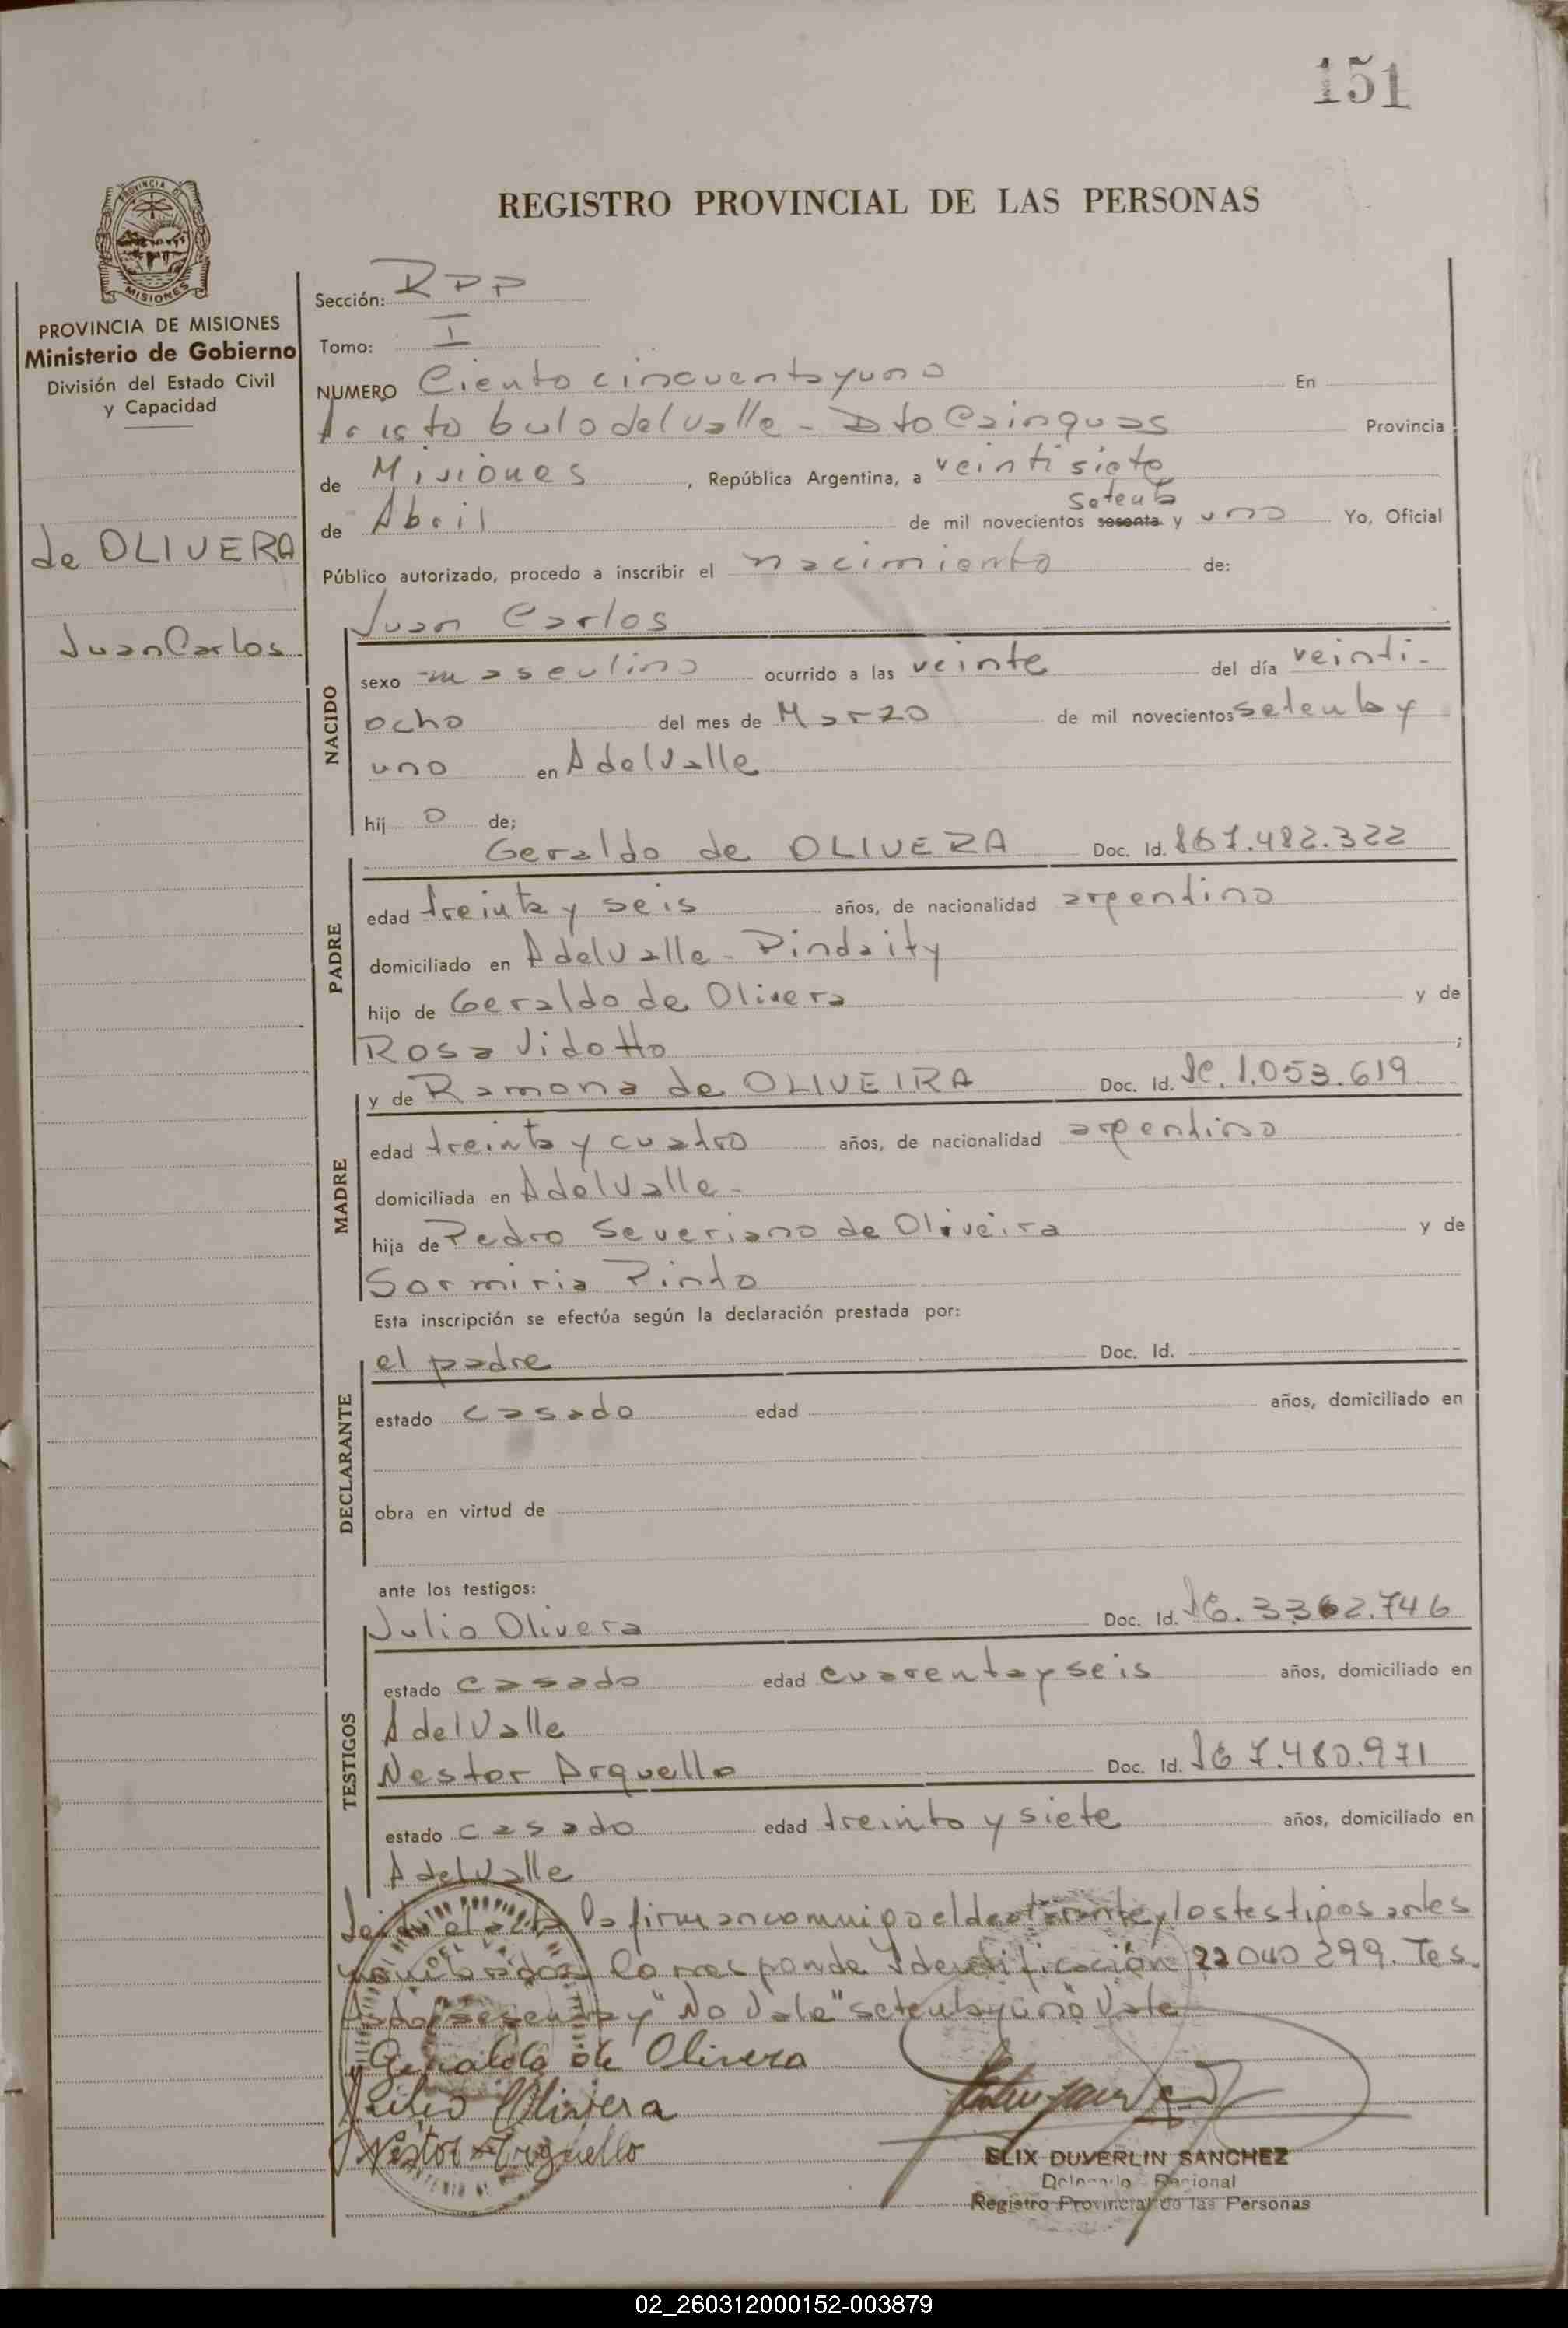 151
REGISTRO PROVINCIAL DE LAS PERSONAS
PROVINCIA DE MISIONES
Ministerio de Gobierno
División del Estado Civil
y Capacidad
de OLIVERA
Juan Carlos
Sección: RPP
Tomo: I
NUMERO Ciento cincuenta y uno En
Aristobulo del Valle - Dto Cainguas Provincia
de Misiones, República Argentina, a veintisiete
setenta
de Abril de mil novecientos sesenta y uno Yo, Oficial
Público autorizado, procedo a inscribir el nacimiento de:
Juan Carlos
NACIDO
sexo masculino ocurrido a las veinte del día veinti-
ocho del mes de Marzo de mil novecientos setenta y
uno en A del Valle
hij o de;
Geraldo de OLIVERA Doc. Id. 7.482.322
PADRE
edad treinta y seis años, de nacionalidad argentino
domiciliado en A del Valle - Pindaity
hijo de Geraldo de Olivera y de
Rosa Vidotto ;
y de Ramona de OLIVEIRA Doc. Id. 1.053.619
MADRE
edad treinta y cuatro años, de nacionalidad argentino
domiciliada en A del Valle -
hija de Pedro Severiano de Oliveira y de
Sormiria Pinto
Esta inscripción se efectúa según la declaración prestada por:
el padre Doc. Id.
DECLARANTE
estado casado edad años, domiciliado en
obra en virtud de
ante los testigos:
Julio Olivera Doc. Id. 3362.746
TESTIGOS
estado casado edad cuarenta y seis años, domiciliado en
A del Valle
Nestor Arguello Doc. Id. 7.480.971
estado casado edad treinta y siete años, domiciliado en
A del Valle
Leida el acta la firman conmigo el declarante y los testigos antes
nombrados Corresponde Identificación 22 040 299. Tes-
tado "sesenta y" No Vale "setenta y uno" Vale
Geraldo de Olivera
Julio Olivera
Nestor Arguello
ELIX DUVERLIN SANCHEZ
Delegado Regional
Registro Provincial de las Personas
02_260312000152-003879